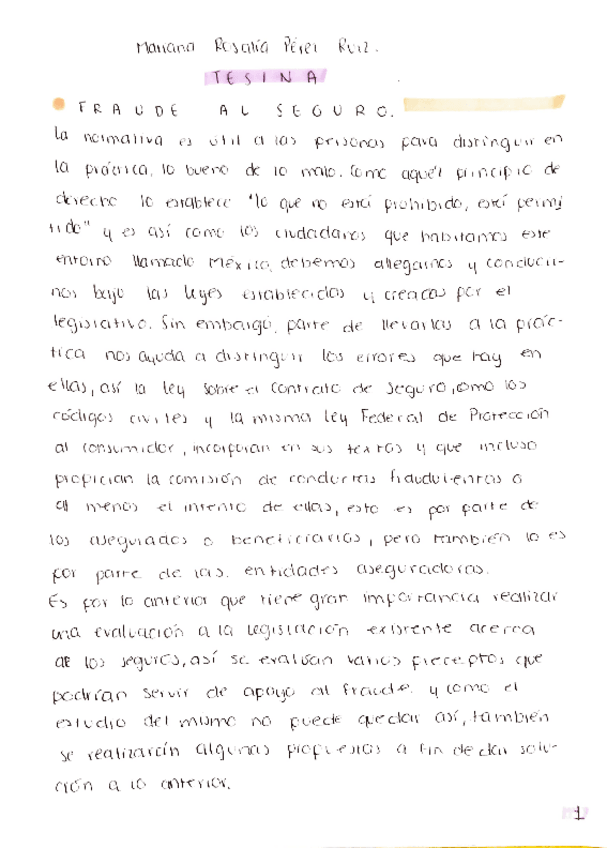 Mariana Rosalía Pérez Ruiz.
TESINA
FRAUDE AL SEGURO.
la normativa es útil a las personas para distinguir en
la práctica, lo bueno de lo malo. Como aquél principio de
derecho lo establece "lo que no está prohibido, está permi
tido" y es así como los ciudadanos que habitamos este
entorno llamado México, debemos allegarnos y conducir-
nos bajo las leyes establecidas y creadas por el
legislativo. Sin embargo, parte de llevarlas a la prác-
tica nos ayuda a distinguir los errores que hay en
ellas, así la ley sobre el contrato de seguro, como los
códigos civiles y la misma Ley Federal de Protección
al consumidor, incorporan en sus textos y que incluso
propician la comisión de conductas fraudulentas o
al menos el intento de ellas, esto es por parte de
los asegurados o beneficiarios, pero también lo es
por parte de las. entidades aseguradoras.
Es por lo anterior que tiene gran importancia realizar
una evaluación a la legislación existente acerca
de los seguros, así se evalúan varios preceptos que
podrían servir de apoyo al fraude. y como el
estudio del mismo no puede quedar así, también
se realizarán algunas propuestas a fin de dar solu-
ción a lo anterior.
1